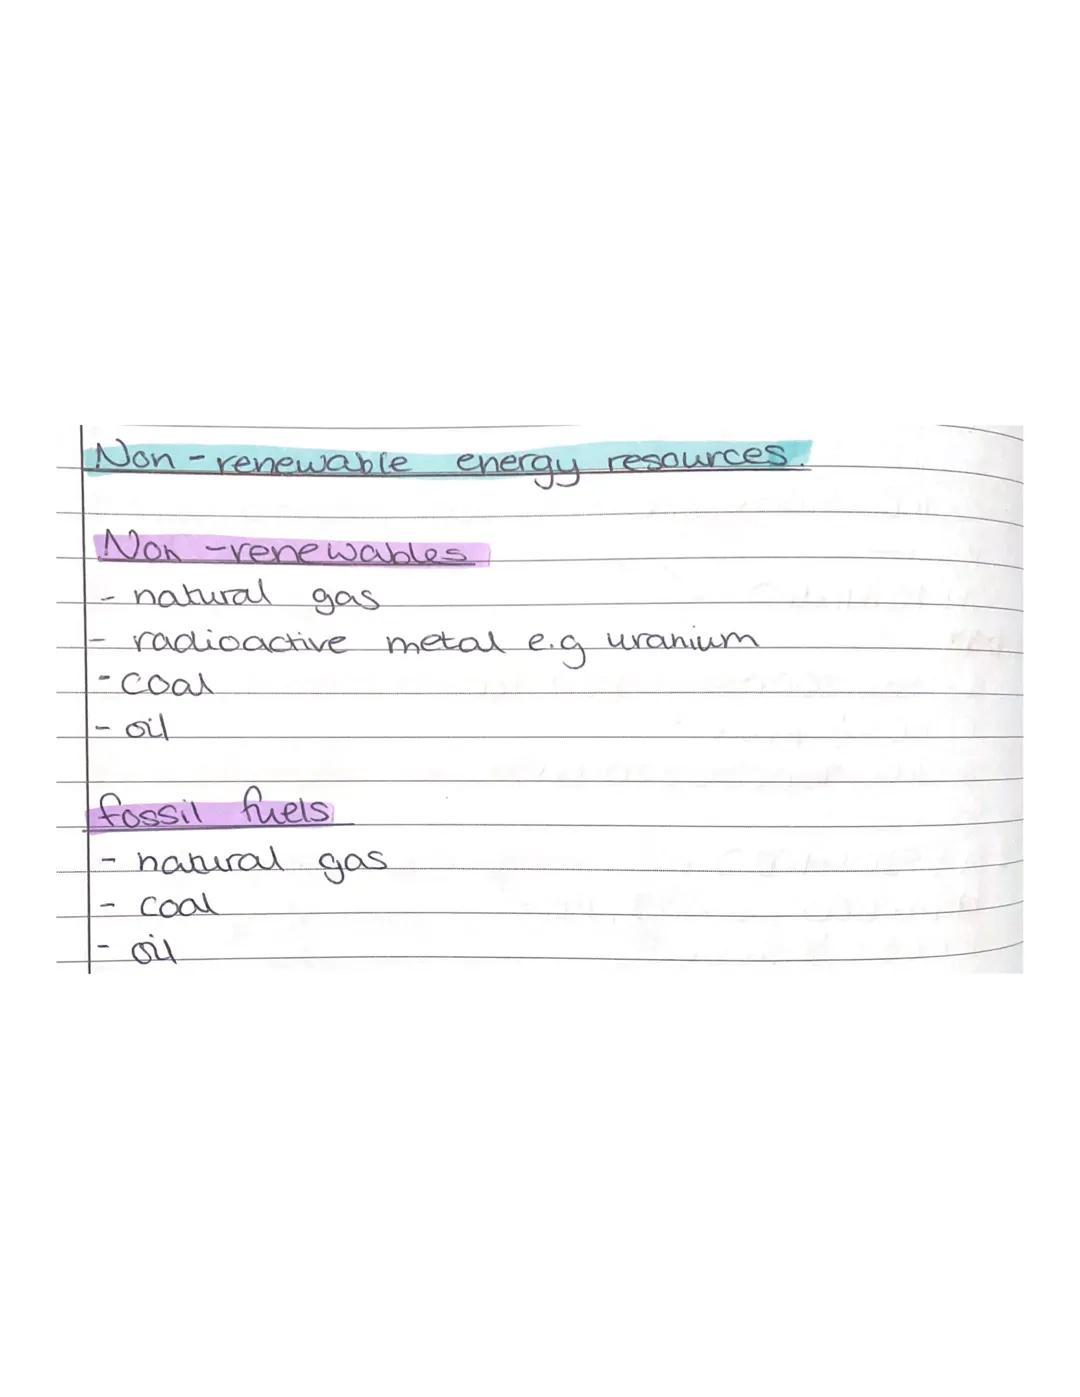 Non-renewable energy resources.
Non-renewables
- natural gas
- radioactive metal e.g uranium
- coal
- oil
fossil fuels
- natural gas
- coal
- oil